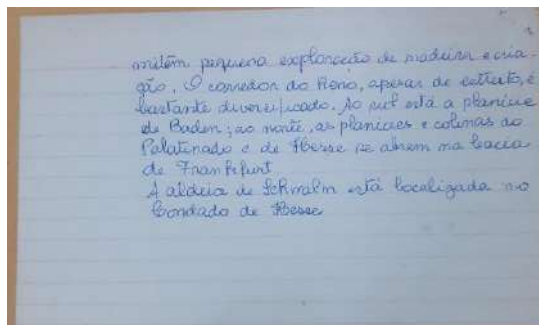 mitem pequena exploração de madeira e cria-
ção. O corredor do Reno, apesar de estreito, é
bastante diversificado. Ao sul está a planície
de Baden; ao norte, as planícies e colinas do
Palatinado e de Hesse se abrem na bacia
de Frankfurt
A aldeia de Schwalm está localizada no
Condado de Hesse